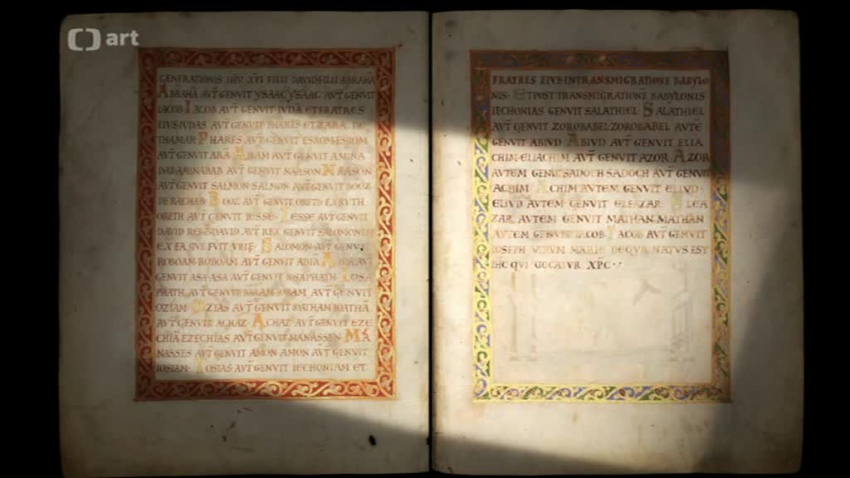 art
GENERATIONIS IHV XPI FILII DAVID FILII ABRAHĀ
ABRAHĀ AVT GENVIT YSAAC YSAAC AVT GENVIT
IACOB IACOB AVT GENVIT IVDĀ ET FRATRES
EIVS IVDAS AVT GENVIT PHARES ET ZARA DE
THAMAR PHARES AVT GENVIT ESROM ESROM
AVT GENVIT ARĀ ARAM AVT GENVIT AMINA
DAB AMINADAB AVT GENVIT NAASON NAASON
AVT GENVIT SALMON SALMON AVT GENVIT BOOZ
DE RACHAB BOOZ AVT GENVIT OBETH EX RVTH
OBETH AVT GENVIT IESSE IESSE AVT GENVIT
DAVID REX DAVID AVT REX GENVIT SALOMONEM
EX EA QVE FVIT VRIE SALOMON AVT GENVIT
ROBOAM ROBOAM AVT GENVIT ABIĀ ABIA AVT
GENVIT ASA ASA AVT GENVIT IOSAPHATH IOSA
PHATH AVT GENVIT IORAM IORAM AVT GENVIT
OZIAM OZIAS AVT GENVIT IOATHAN IOATHĀ
AVT GENVIT ACHAZ ACHAZ AVT GENVIT EZE
CHIĀ EZECHIAS AVT GENVIT MANASSEN MA
NASSES AVT GENVIT AMON AMON AVT GENVIT
IOSIAM IOSIAS AVT GENVIT IECHONIAM ET
FRATRES EIVS IN TRANSMIGRATIONE BABYLO
NIS ET POST TRANSMIGRATIONE BABYLONIS
IECHONIAS GENVIT SALATHIEL SALATHIEL
AVT GENVIT ZOROBABEL ZOROBABEL AVTE
GENVIT ABIVD ABIVD AVT GENVIT ELIA
CHIM ELIACHIM AVT GENVIT AZOR AZOR
AVTEM GENVIT SADOCH SADOCH AVT GENVIT
ACHIM ACHIM AVTEM GENVIT ELIVD
ELIVD AVTEM GENVIT ELEAZAR ELEA
ZAR AVTEM GENVIT MATHAN MATHAN
AVTEM GENVIT IACOB IACOB AVT GENVIT
IOSEPH VIRVM MARIE DE QVA NATVS EST
IHC QVI VOCATVR XPC